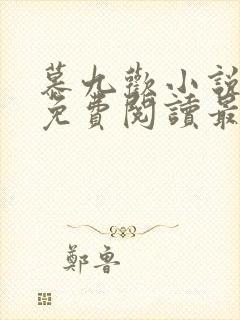 慕九歡小說
免費閱讀最
鄭魯